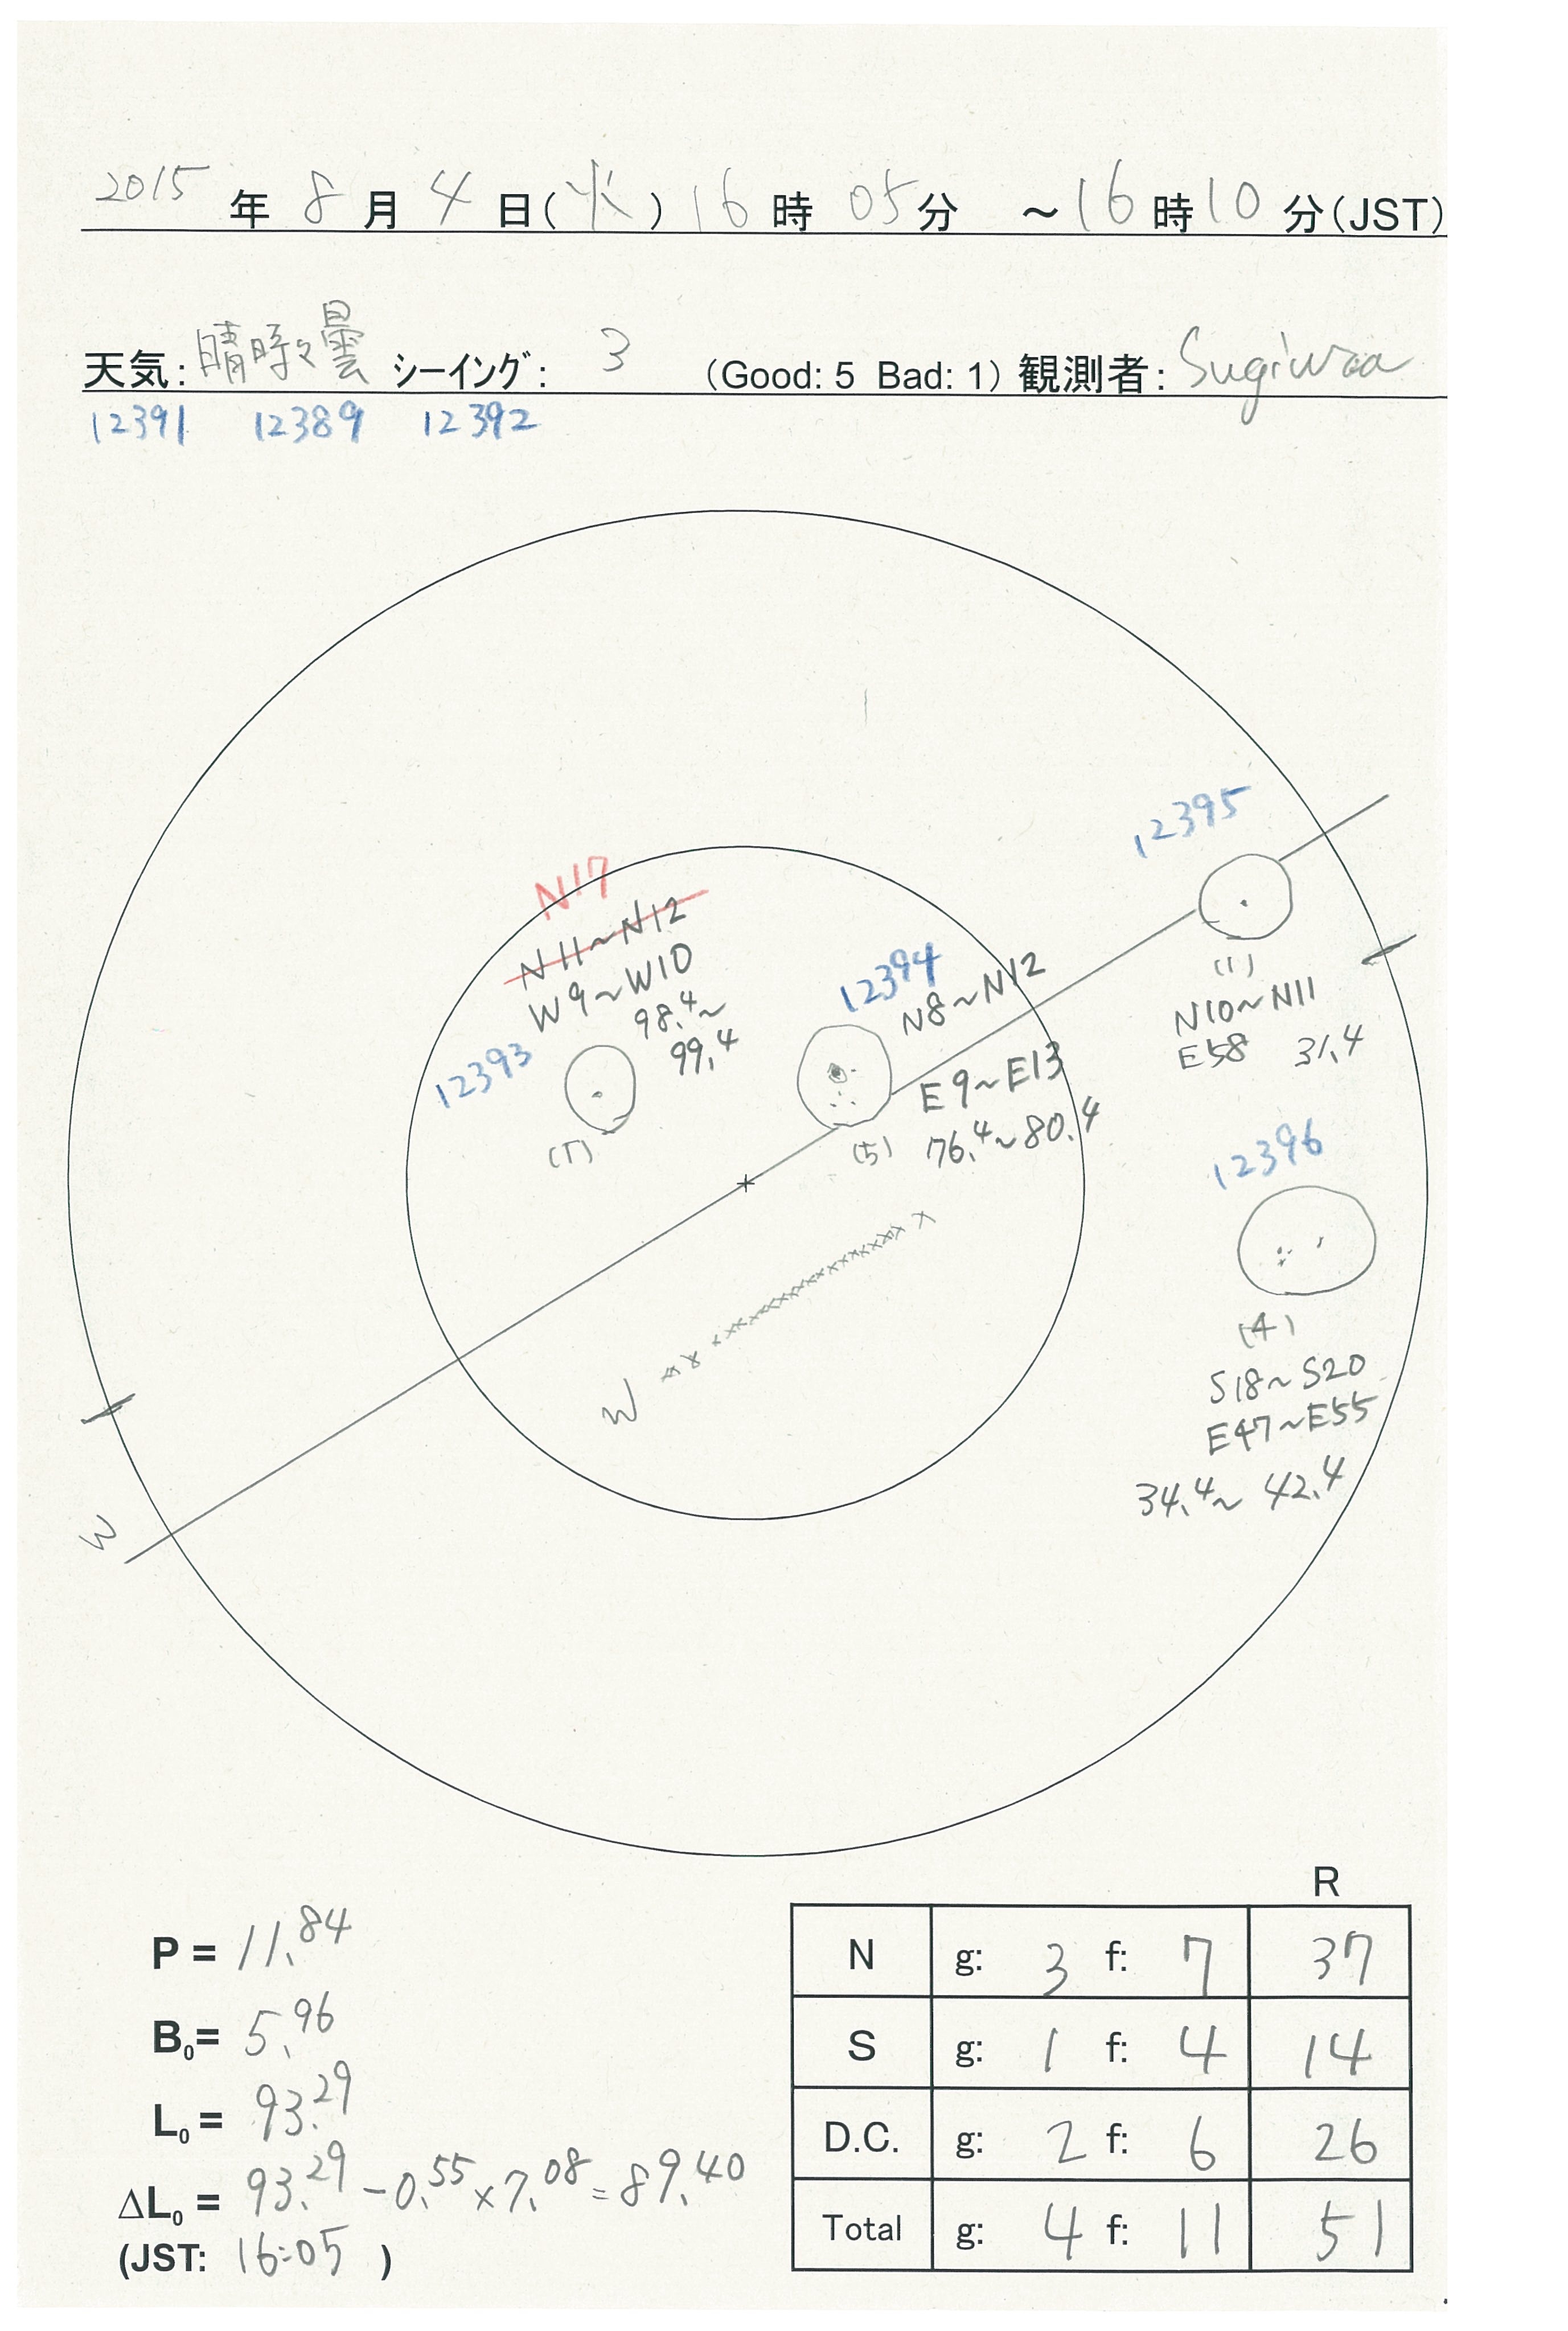 2015 年 8 月 4 日(火) 16 時 05 分 ～ 16 時 10 分(JST)
天気: 晴時々曇 シーイング: 3 (Good: 5 Bad: 1) 観測者: Sugiura
12391 12389 12392
12395
N17
N11~N12
W9~W10
98.4~
99.4
12393
(1)
12394
N8~N12
E9~E13
76.4~80.4
(5)
(1)
N10~N11
E58 31.4
12396
(4)
S18~S20
E47~E55
34.4~ 42.4
W
W
P = 11.84
B0= 5.96
L0 = 93.29
ΔL0 = 93.29 - 0.55 × 7.08 = 89.40
(JST: 16:05 )
R
N g: 3 f: 7 37
S g: 1 f: 4 14
D.C. g: 2 f: 6 26
Total g: 4 f: 11 51